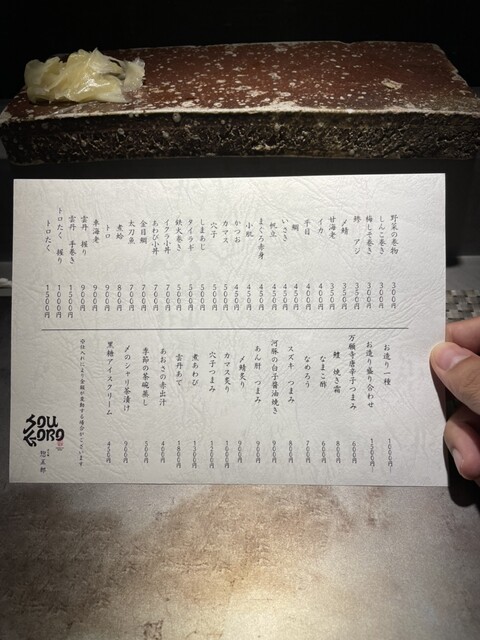 野菜の巻物 300円
しんこ巻き 300円
梅しそ巻き 300円
鯵 アジ 350円
〆鯖 350円
甘海老 350円
イカ 400円
平目 400円
鯛 400円
いさき 450円
帆立 450円
まぐろ赤身 450円
小肌 450円
かつお 450円
カマス 500円
穴子 500円
しまあじ 500円
タイラギ 500円
鉄火巻き 500円
イクラ小丼 700円
あわび小丼 700円
金目鯛 700円
太刀魚 700円
煮蛤 800円
トロ 900円
車海老 900円
雲丹 握り 900円
雲丹 手巻き 1000円
トロたく 握り 1000円
トロたく 1500円
お造り一種 1000円〜
お造り盛り合わせ 1500円〜
万願寺唐辛子つまみ 600円
鱧 焼き霜 800円
なまこ酢 600円
なめろう 800円
スズキ つまみ 800円
河豚の白子醤油焼き 900円
あん肝 つまみ 900円
〆鯖炙り 900円
カマス炙り 1000円
穴子つまみ
煮あわび
雲丹あて 1800円
あおさの赤出汁 400円
季節の茶碗蒸し 500円
〆のシャリ茶漬け 900円
黒糖アイスクリーム 450円
仕入れにより金額が変動する場合がございます
SOU
KORO
惣五郎